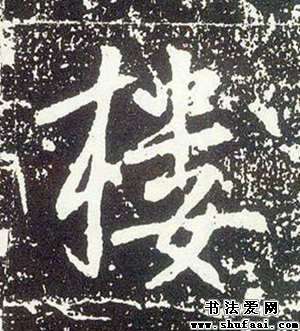 楼
书法爱网
www.shufaai.com